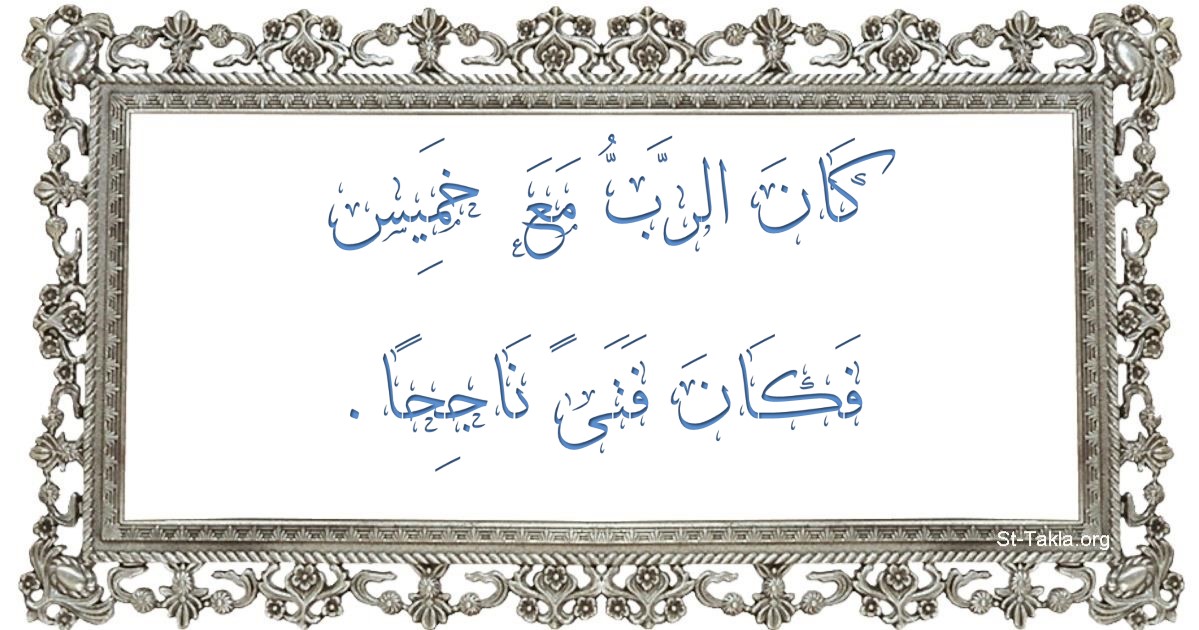 كَانَ الرَّبُّ مَعَ خَمِيس
فَكَانَ فَتَىً نَاجِحًا .
St-Takla.org